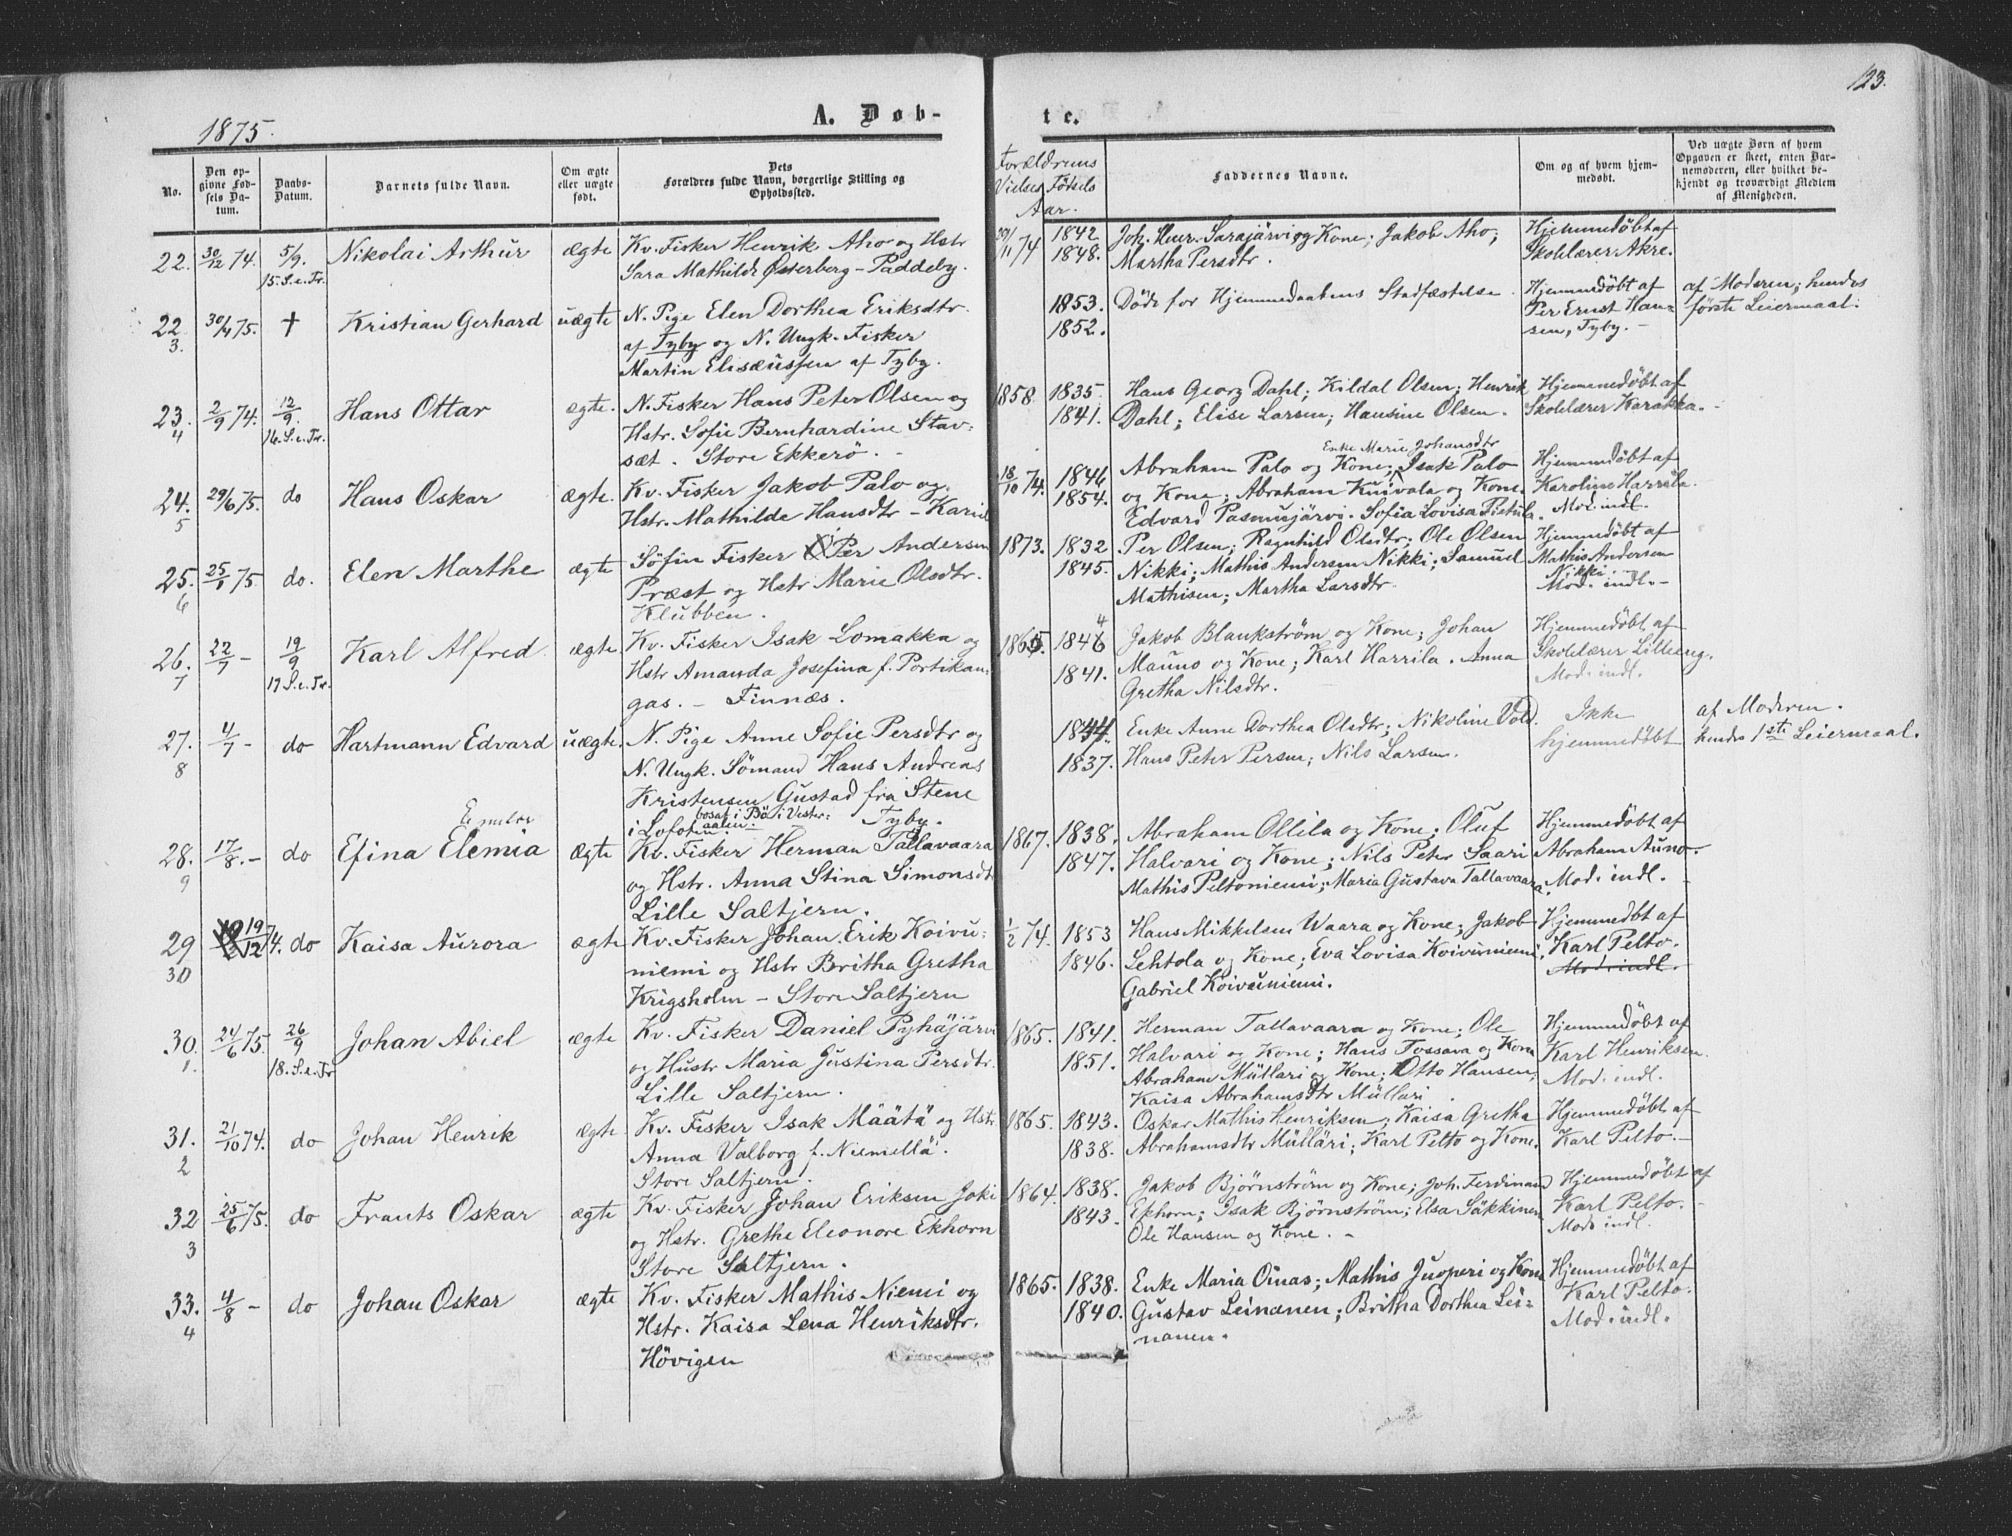 123.
1875.
A. Døb-
te.
No.
Den op-
givne Fød-
sels Da-
tum.
Daabs-
Datum.
Barnets fulde Navn.
Om ægte
eller uægte
født.
Dets
Forældres fulde Navn, borgerlige Stilling og
Opholdssted.
Forældrenes
Vielses Fødsels
Aar.
Faddernes Navne.
Om og af hvem hjem-
medøbt.
Ved uægte Børn af hvem
Opgaven er skeet, enten Bar-
nemoderen, eller hvilket be-
kjendt og troværdigt Medlem
af Menigheden.
22. 30/12 74. 5/9. 15.S.e.Tr. Nikolai Arthur ægte
Kv. Fisker Henrik Aho og Hstr
Sara Mathilde Østerberg - Paddeby.
29/11 74
1842
1848.
Joh. Henr. Sarajärvi og Kone; Jakob Aho;
Martha Persdtr.
Hjemmedøbt af
Skolelærer Akre.
22 3. 30/4 75. † Kristian Gerhard uægte
N. Pige Elen Dorthea Eriksdtr
af Tyby og N. Ungk. Fisker
Martin Eliseussen af Tyby.
1853.
1852.
Døde før Hjemmedaabens Stadfæstelse
Hjemmedøbt af
Per Ernst Han-
sen, Tyby. -
af Moderen; hendes
første Leiermaal.
23. 4 2/9 74. 12/9. 16.S.e.Tr. Hans Ottar ægte.
N. Fisker Hans Peter Olsen og
Hstr. Sofie Bernhardine Stav-
sæt. Store Ekkerö. -
1858.
1835.
1841.
Hans Georg Dahl; Kildal Olsen; Henrik
Dahl; Elise Larsen; Hansine Olsen.
Hjemmedøbt af
Skolelærer Karakka.
24. 5 29/6 75. do Hans Oskar ægte.
Kv. Fisker Jakob Palo og
Hstr. Mathilde Hansdtr - Kariel
18/10 74.
1846
1854.
Enke Marie Johansdtr
Abraham Palo og Kone; Isak Palo
og Kone; Abraham Knivala og Kone.
Edvard Pasmujärvi. Sofia Lovisa Pistula.
Hjemmedøbt af
Karoline Harrila.
Mod. indl.
25. 6 25/1 75. do. Elen Marthe ægte
Søfin Fisker Per Andersen
Præst og Hstr Marie Olsdtr.
Klubben.
1873.
1832
1845.
Per Olsen; Ragnhild Olsdtr; Ole Olsen
Nikki; Mathis Andersen Nikki; Samuel
Mathisen; Martha Larsdtr.
Hjemmedøbt af
Mathis Andersen
Nikki.
Mod. indl. -
26. 7 22/7 - 19/9 17.S.e.Tr. Karl Alfred. ægte.
Kv. Fisker Isak Lomakka og
Hstr Amanda Josefina f. Portikan-
gas. - Finnæs.
1865.
4
1846
1841.
Jakob Blankström og Kone; Johan
Mauno og Kone; Karl Harrila. Anna
Gretha Nilsdtr.
Hjemmedøbt af
Skolelærer Lilleeng.
Mod. indl.
27. 8 4/7 - do Hartmann Edvard uægte.
N. Pige Anne Sofie Persdtr og
N. Ungk. Sömand Hans Andreas
Kristensen Gustad fra Stene
i Lofoten. bosat i Bö i Vester-
aalen. Tyby.
1844.
1837.
Enke Anne Dorthea Olsdtr; Nikoline Vold.
Hans Peter Persen; Nils Larsen.
Ikke
hjemmedøbt
af Moderen.
hendes 1ste Leiermaal.
28. 9 17/8. - do Efina Elemia ægte
Kv. Fisker Herman Tallavaara
og Hstr. Anna Stina Simonsdtr
Lille Saltjern.
1867.
1838.
1847.
Abraham Ollila og Kone; Oluf
Halvari og Kone; Nils Peter Saari
Mathis Peltoniemi; Maria Gustava Tallavaara.
Hjemmedøbt af
Abraham Auno.
Mod. indl. -
29 30 19/12 74. do Kaisa Aurora ægte
Kv. Fisker Johan Erik Koivu-
niemi og Hstr Britha Gretha
Krigsholm - Store Saltjern
1/2 74.
1853
1846.
Hans Mikkelsen Waara og Kone; Jakob
Lehtola og Kone; Eva Lovisa Koivuniemi.
Gabriel Koivuniemi.
Hjemmedbt af
Karl Pelto.
Mod. indl.
30. 1. 24/6 75. 26/9 18.S.e.Tr Johan Abiel ægte
Kv. Fisker Daniel Pyhäjärvi
og Hustr Maria Gustina Persdtr.
Lille Saltjern.
1865.
1841.
1851.
Herman Tallavaara og Kone; Ole
Halvari og Kone; Hans Tossava og Kone
Abraham Müllari og Kone; Otto Hansen;
Kaisa Abrahamsdtr Müllari.
Hjemmedøbt af
Karl Henriksen.
Mod. indl.
31. 2 21/10 74. do Johan Henrik ægte
Kv. Fisker Isak Määtä og Hstr.
Anna Valborg f. Niemellä.
Store Saltjern.
1865.
1843.
1838.
Oskar Mathis Henriksen; Kaisa Gretha
Abrahamsdtr Mülläri; Karl Pelto og Kone.
Hjemmedøbt af
Karl Pelto. -
32 3 25/6 75. do Frants Oskar ægte
Kv. Fisker Johan Eriksen Joki
og Hstr. Grethe Eleonore Ekhorn
Store Saltjern.
1864.
1838.
1843.
Jakob Bjørnström og Kone; Joh. Ferdinand
Ekhorn; Isak Bjørnström; Elsa Säkkinen
Ole Hansen og Kone. -
Hjemmedøbt af
Karl Pelto.
Mod. indl.
33. 4 4/8 - do Johan Oskar ægte
Kv. Fisker Mathis Niemi og
Hstr. Kaisa Lena Henriksdtr.
Hövigen
1865.
1838.
1840.
Enke Maria Oinas; Mathis Juoperi og Kone
Gustav Leinanen; Britha Dorthea Lei-
nanen.
Hjemmedøbt af
Karl Pelto.
Mod. indl.